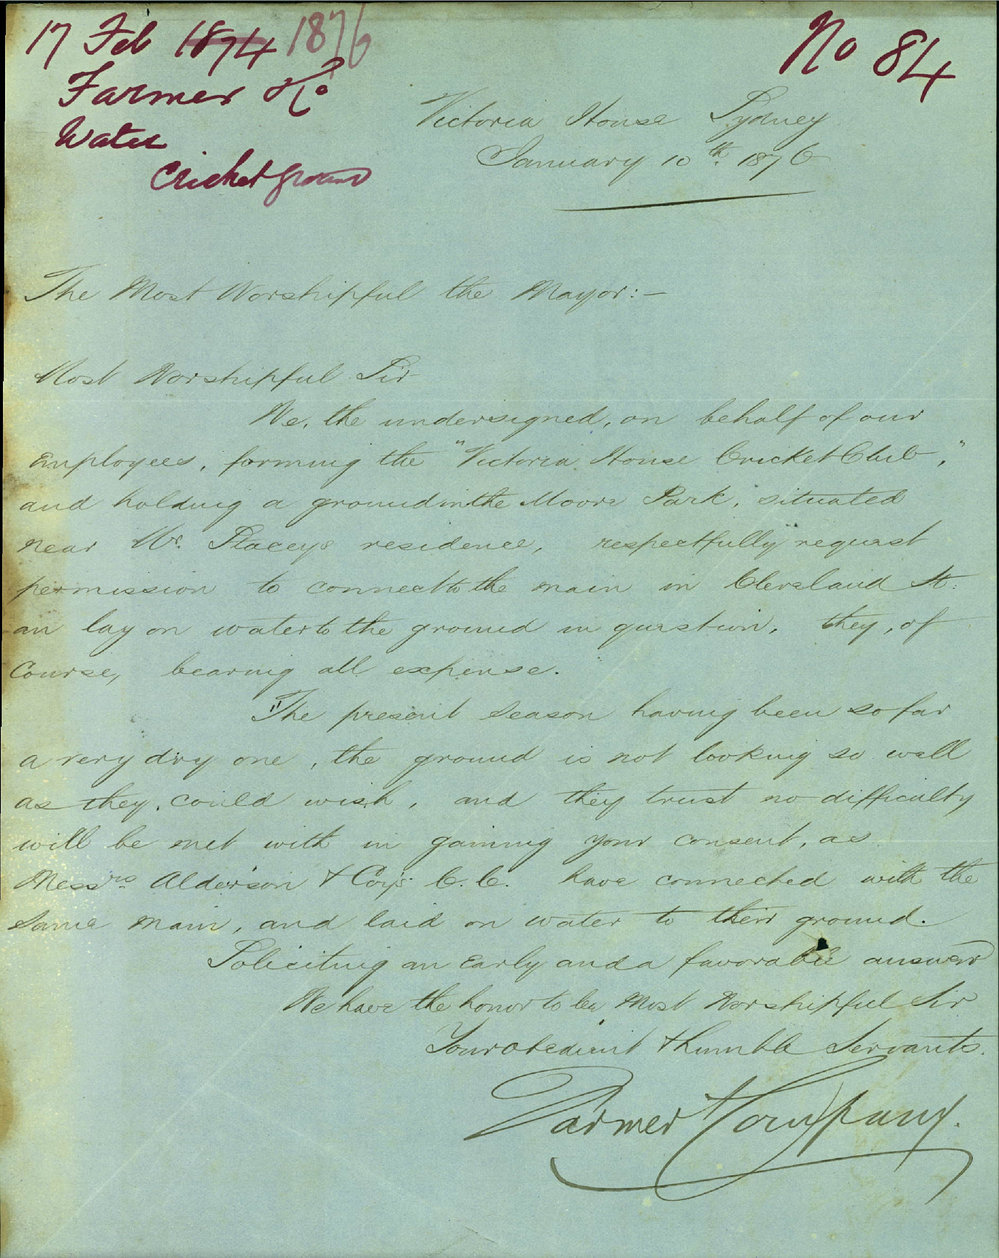 17 Feb 1874 1876
No 84
Farmer & Co
Water
Cricket ground
Victoria House Sydney
January 10th 1876
The Most Worshipful the Mayor:—
Most Worshipful Sir
We, the undersigned, on behalf of our
Employees, forming the "Victoria House Cricket Club,"
and holding a ground in the Moore Park, situated
near Mr. Stacey's residence, respectfully request
permission to connect to the main in Cleveland St.
an lay on water to the ground in question, they, of
course, bearing all expense.
"The present season having been so far
a very dry one, the ground is not looking so well
as they, could wish, and they trust no difficulty
will be met with in gaining your consent, as
Messrs Alderson & Coy's C.C. have connected with the
same main, and laid on water to their ground.
Soliciting an early and a favorable answer
We have the honor to be, Most Worshipful Sir
Your obedient & humble Servants.
Farmer & Company.